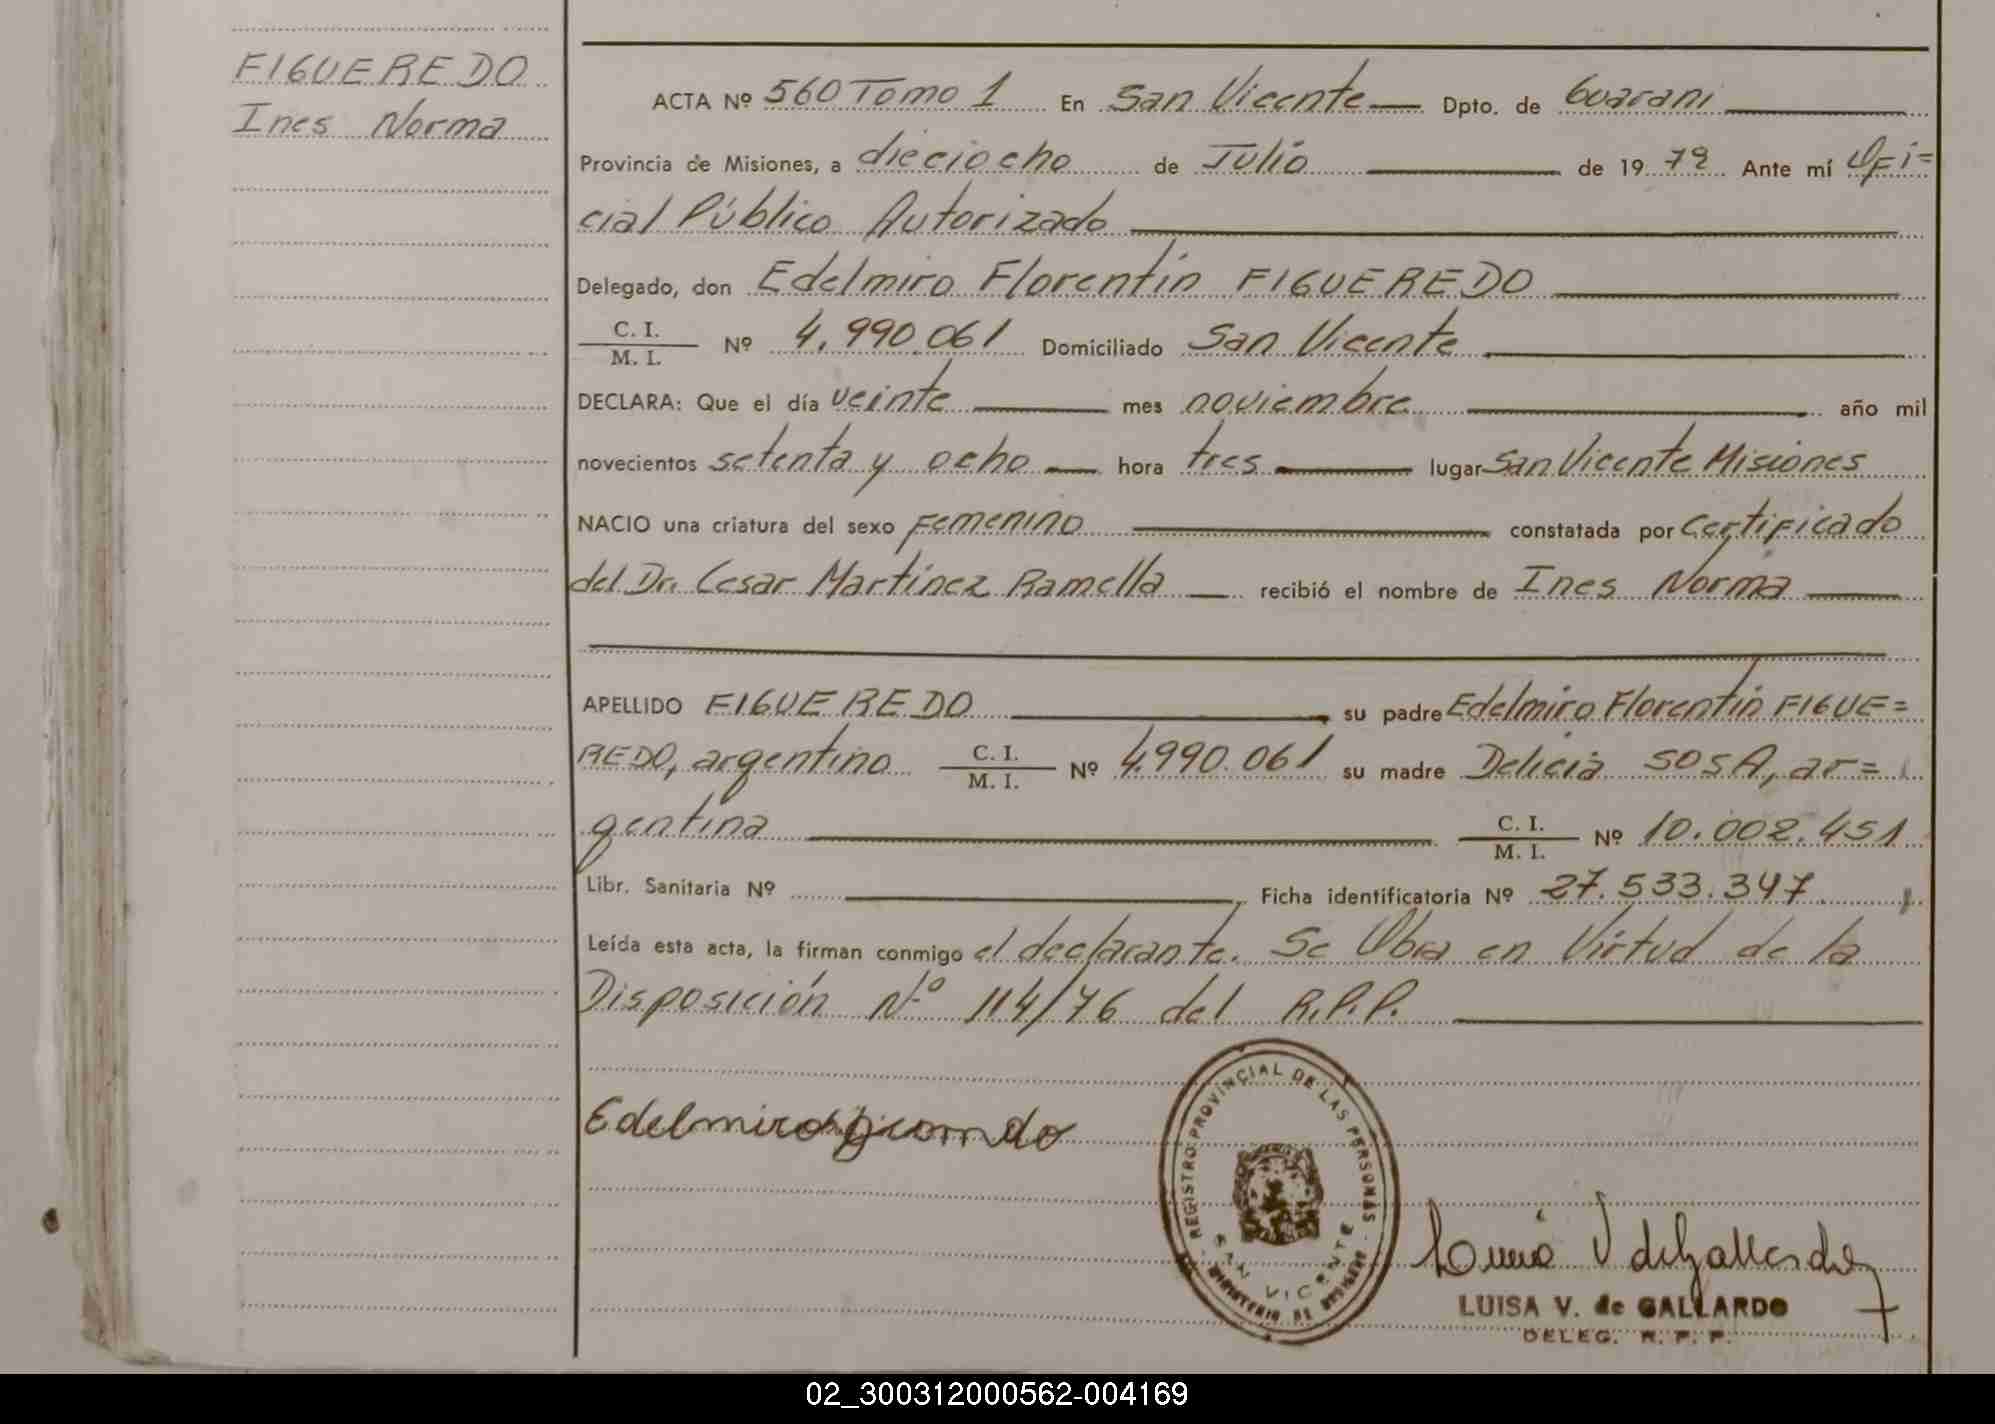 FIGUEREDO
Ines Norma
ACTA Nº 560 Tomo 1 En San Vicente Dpto. de Guarani
Provincia de Misiones, a dieciocho de Julio de 1979 Ante mí Ofi=
cial Público Autorizado
Delegado, don Edelmiro Florentín FIGUEREDO
C. I.
M. I. Nº 4.990.061 Domiciliado San Vicente
DECLARA: Que el día veinte mes noviembre año mil
novecientos setenta y ocho hora tres lugar San Vicente Misiones
NACIO una criatura del sexo Femenino constatada por Certificado
del Dr. Cesar Martínez Ramella recibió el nombre de Ines Norma
APELLIDO FIGUEREDO su padre Edelmiro Florentín FIGUE=
REDO, argentino C. I. M. I. Nº 4.990.061 su madre Delicia SOSA, ar=
gentina C. I. M. I. Nº 10.002.451
Libr. Sanitaria Nº Ficha identificatoria Nº 27.533.347
Leída esta acta, la firman conmigo el declarante. Se Obra en Virtud de la
Disposición Nº 114/76 del R.P.P.
Edelmiro
REGISTRO PROVINCIAL DE LAS PERSONAS
SAN VICENTE
MINISTERIO DE GOBIERNO
Luisa V de Gallardo
LUISA V. de GALLARDO
DELEG. R. P. P.
02_300312000562-004169